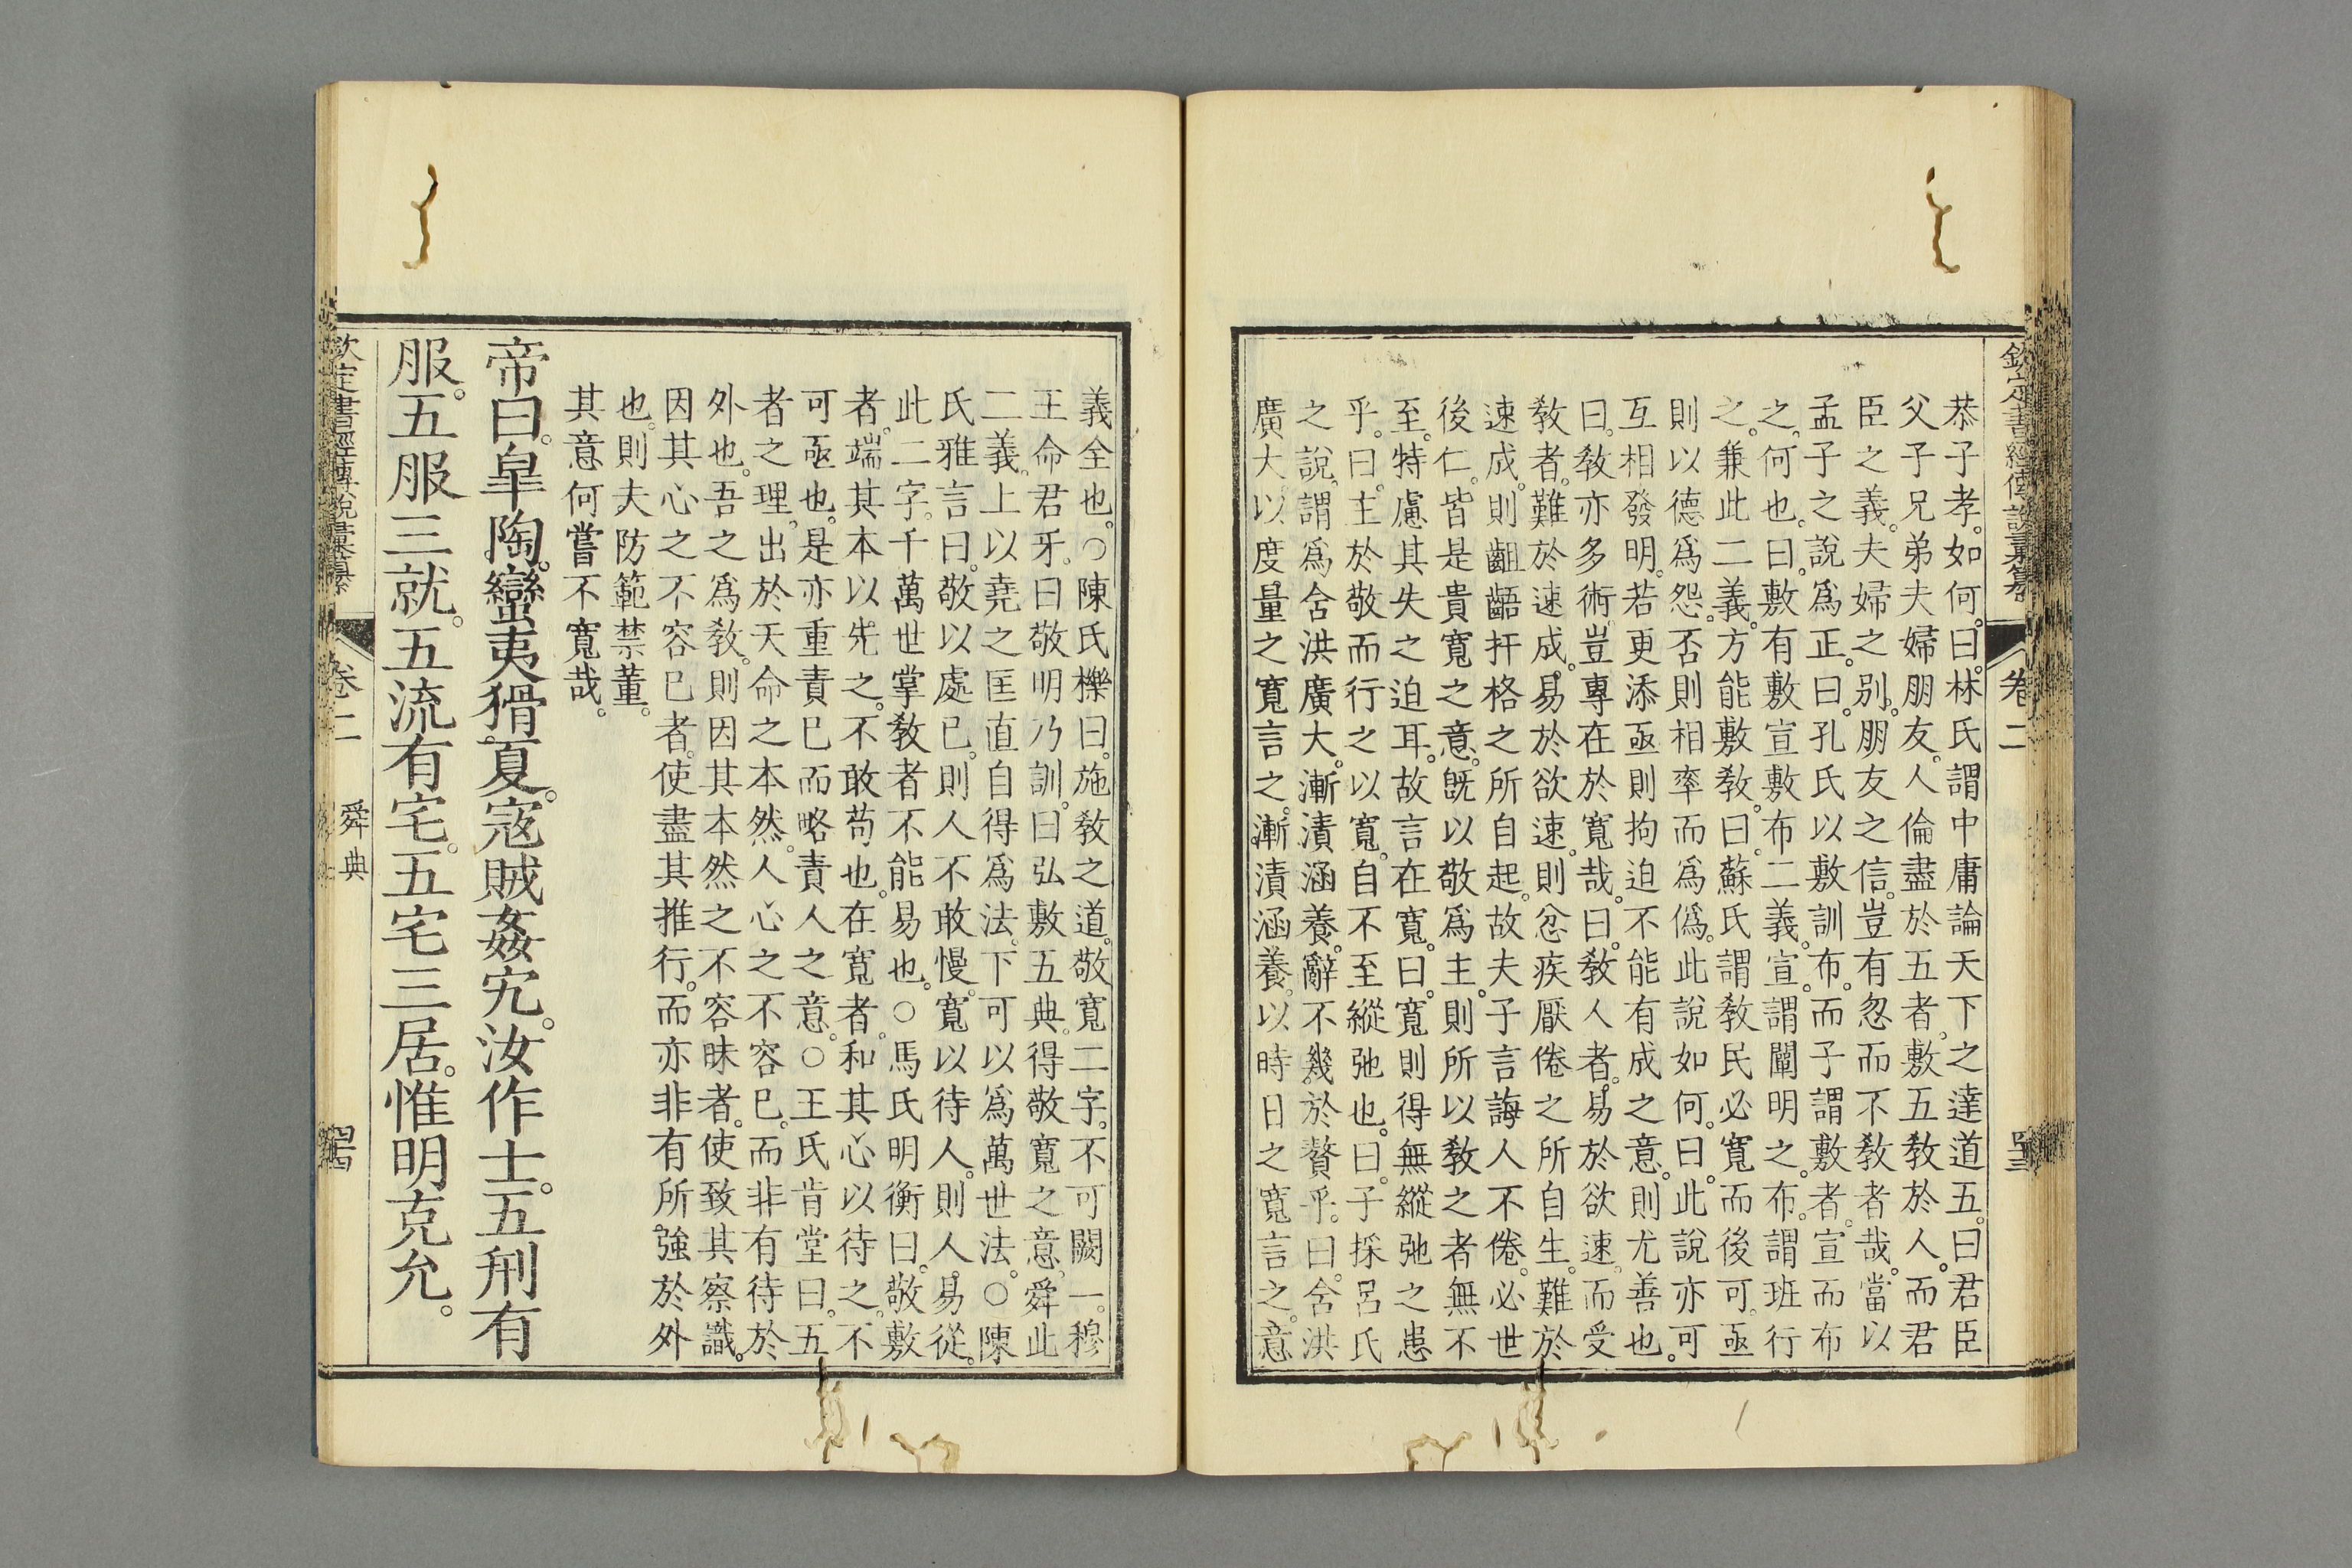 欽定書經傳說彙纂 卷二
恭子孝。如何。曰。林氏謂中庸論天下之達道五。曰君臣
父子兄弟夫婦朋友。人倫盡於五者。敷五教於人。而君
臣之義。夫婦之別。朋友之信。豈有忽而不教者哉。當以
孟子之說爲正。曰。孔氏以敷訓布。而子謂敷者。宣而布
之。何也。曰。敷有敷宣敷布二義。宣。謂闡明之。布。謂班行
之。兼此二義。方能敷教。曰。蘇氏謂教民必寬而後可。亟
則以德爲怨。否則相率而爲僞。此說如何。曰。此說亦可
互相發明。若更添亟則拘迫不能有成之意。則尤善也。
曰。教亦多術。豈專在於寬哉。曰。教人者。易於欲速。而受
教者。難於速成。易於欲速。則忿疾厭倦之所自生。難於
速成。則齟齬扞格之所自起。故夫子言誨人不倦。必世
後仁。皆是貴寬之意。旣以敬爲主。則所以教之者無不
至。特慮其失之迫耳。故言在寬。曰。寬則得無縱弛之患
乎。曰。主於敬而行之以寬。自不至縱弛也。曰。子採呂氏
之說。謂爲含洪廣大。漸漬涵養。辭不幾於贅乎。曰。含洪
廣大以度量之寬言之。漸漬涵養。以時日之寬言之。意
義全也。○陳氏櫟曰。施教之道。敬寬二字。不可闕一。穆
王命君牙。曰敬明乃訓。曰弘敷五典。得敬寬之意。舜此
二義。上以堯之匡直自得爲法。下可以爲萬世法。○陳
氏雅言曰。敬以處已。則人不敢慢。寬以待人。則人易從。
此二字。千萬世掌教者不能易也。○馬氏明衡曰。敬敷
者。端其本以先之。不敢苟也。在寬者。和其心以待之。不
可亟也。是亦重責巳而略責人之意。○王氏肯堂曰。五
者之理。出於天命之本然。人心之不容巳。而非有待於
外也。吾之爲教。則因其本然之不容昧者。使致其察識。
因其心之不容巳者。使盡其推行。而亦非有所強於外
也。則夫防範禁董。
其意何嘗不寬哉。
帝曰。皐陶。蠻夷猾夏。寇賊姦宄。汝作士。五刑有
服。五服三就。五流有宅。五宅三居。惟明克允。
欽定書經傳說彙纂 卷二 舜典